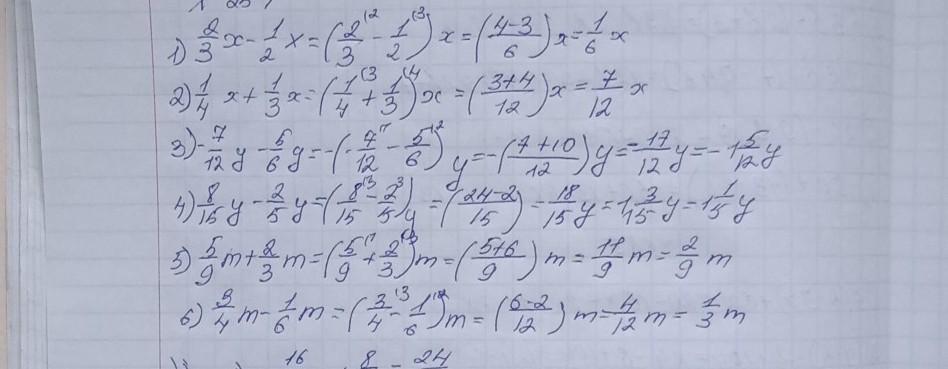 1) 2/3 x - 1/2 x = (2/3^(2 - 1/2^(3) x = (4-3/6) x = 1/6 x
2) 1/4 x + 1/3 x = (1/4^(3 + 1/3^(4) x = (3+4/12) x = 7/12 x
3) - 7/12 y - 5/6 y = -(- 7/12^(1 - 5/6^(2) y = -(7+10/12) y = - 17/12 y = - 1 5/12 y
4) 8/15 y - 2/5 y = (8/15^(3 - 2/5^3) y = (24-2/15) = 18/15 y = 1 3/15 y = 1 1/5 y
5) 5/9 m + 2/3 m = (5/9^(1 + 2/3^(3) m = (5+6/9) m = 11/9 m = 2/9 m
6) 3/4 m - 1/6 m = (3/4^(3 - 1/6^(2) m = (6-2/12) m = 4/12 m = 1/3 m
16 8 = 24